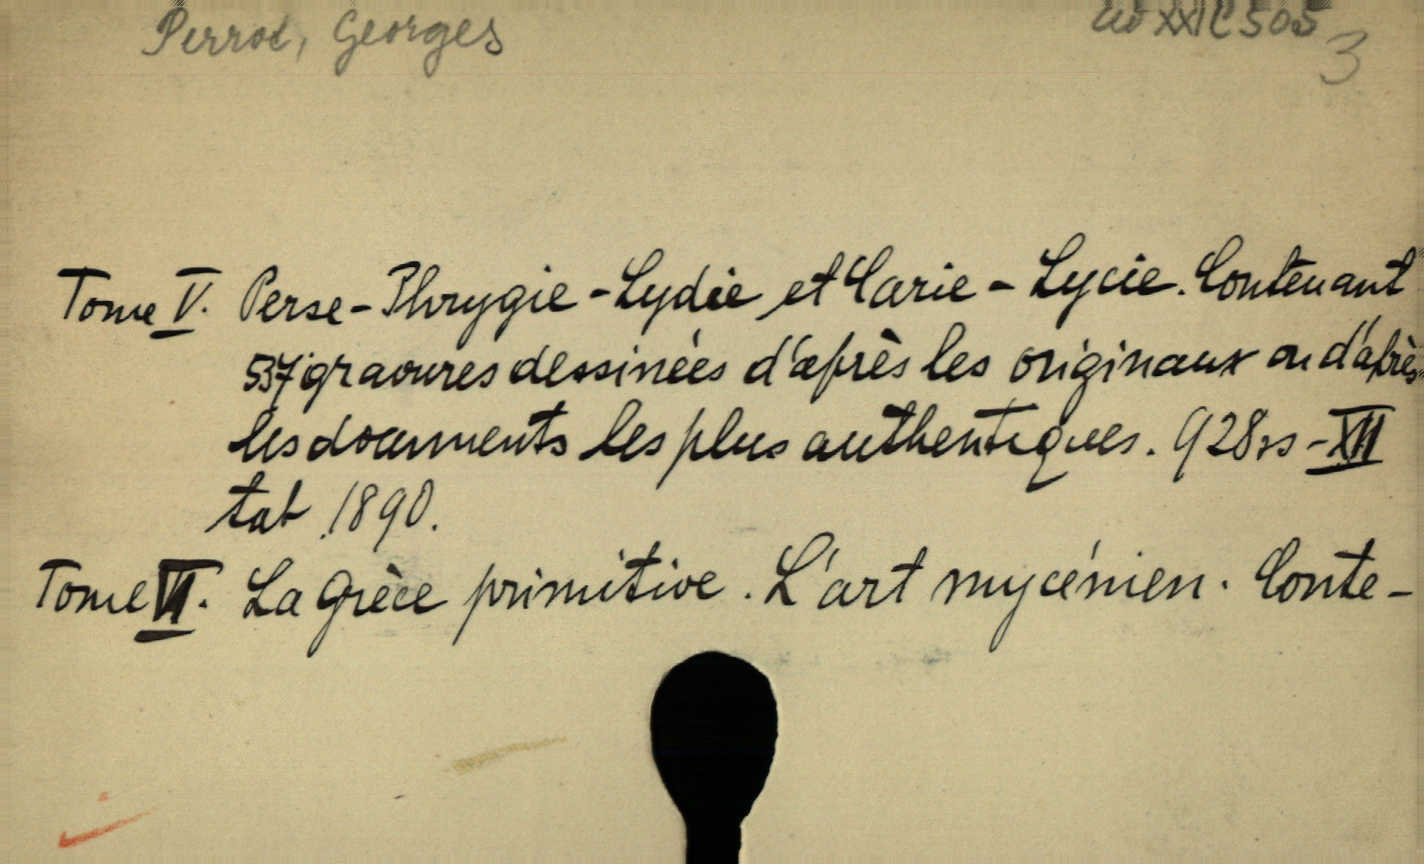 Perrot, Georges
XXIC 505
3
Tome V. Perse - Phrygie - Lydie et Carie - Lycie. Contenant
537 gravures dessinées d'après les originaux ou d'après
les documents les plus authentiques. 928 rs - XII
tab 1890.
Tome VI. La Grèce primitive. L'art mycénien. Conte-